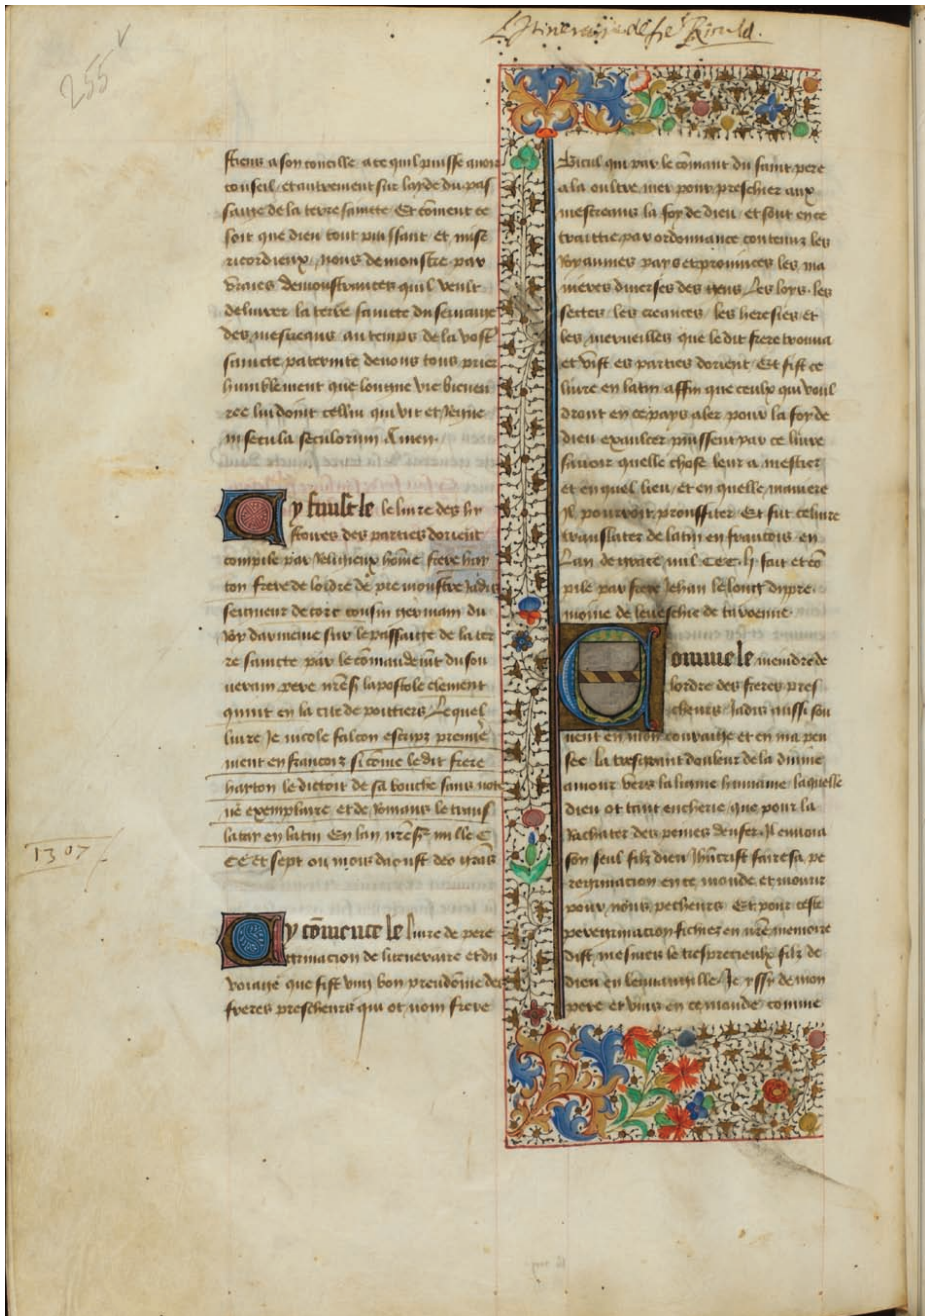 L'Itineraire de fre Riculd.
255
stiens a son concille a ce quil puisse avoir
conseil et autrement sur layde du pas
saige de la terre saincte Et coment ce
soit que dieu tout puissant et mise
ricordieux nous demonstre par
vraies demonstrances quil veult
delivrer la terre saincte du servaige
des mescreans au temps de la vostre
saincte paternite devons tous prier
humblement que longue vie bieneu
ree lui doint cellui qui vit et regne
in secula seculorum Amen
Cy fenist le le livre des hy
stoires des parties dorient
compile par religieux home frere hay
ton frere de lordre de premonstre jadis
seigneur de core cousin germain du
Roy darmenie sur le passaige de la ter
re saincte par le comandemt du sou
verain pere nres lapostole clement
quint en la cite de poittiers Lequel
livre Je nicole falcon escrips premie
ment en francois si come le dit frere
hayton le dictoit de sa bouche sans note
ne exemplaire et de romans le trans
latay en latin En lan nres mille C
CC et sept ou mois daoust deo gras
1307
Cy comence le livre de pere
grinacion de litineraire et du
voiaige que fist ung bon preudome des
freres prescheurs qui ot nom frere
Bicul qui par le comant du saint pere
ala oultre mer pour preschier aux
mescreans la foy de dieu et sont en ce
traittie par ordonnance contenuz les
Royaumes pays et provinces les ma
nieres diverses des gens Les loys les
sectes les creances les heresies et
les merveilles que le dit frere trouva
et vist es parties dorient Et fist ce
livre en latin affin que ceulx qui voul
dront en ce pays aler pour la foy de
dieu exaulcer puissent par ce livre
savoir quelle chose leur a mestier
et en quel lieu et en quelle maniere
Il pourroit prouffiter Et fut ce livre
translatez de latin en francois en
Lan de grace mil CCC. lj fait et co
pile par frere Jehan le long dypre
moine de leveschie de taroenne
Comme le meindre de
lordre des freres pres
cheurs Jadis aussi sou
vent en mon couraige et en ma pen
see la tresgrant doulceur de la divine
amour vers la lignie humaine laquelle
dieu ot tant encherie que pour la
Rachater des peines denfer Il envoia
son seul filz dieu Jhucrist faire sa pe
regrinacion en ce monde et mourir
pour nous pecheurs Et pour ceste
peregrinacion fichiez en nre memoire
dist mesmes le tresprecieulx filz de
dieu en leuvangille Je yssy de mon
pere et vins en ce monde comme